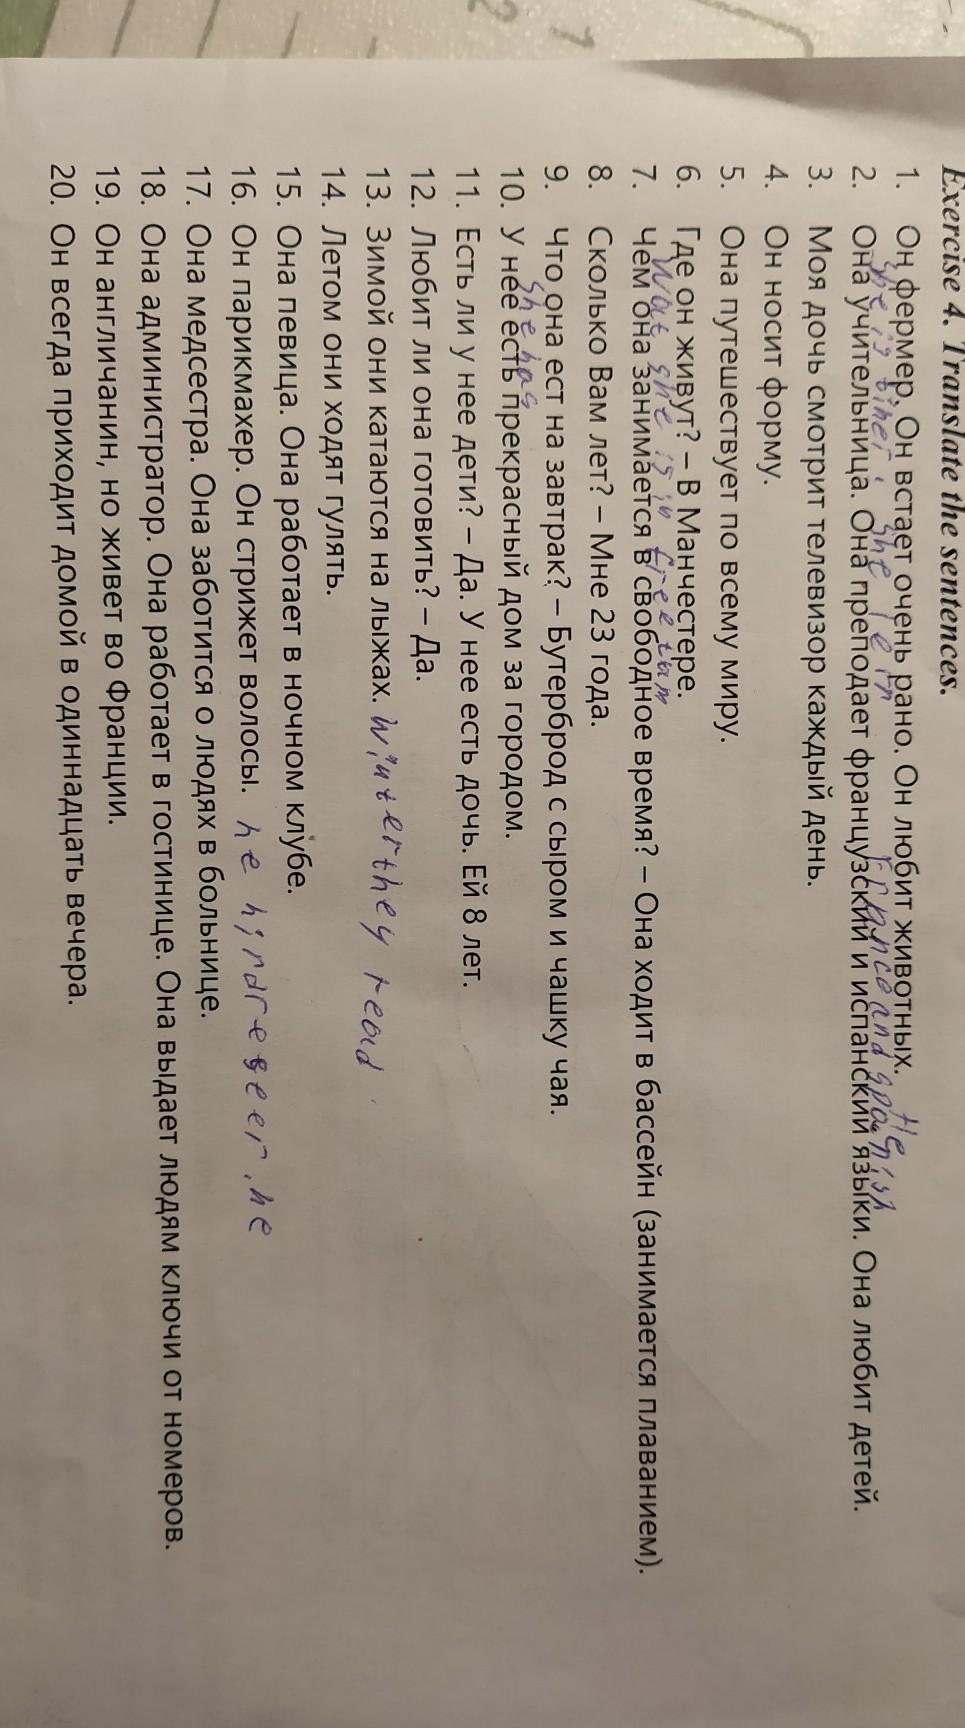 Exercise 4. Translate the sentences.
1. Он фермер. Он встает очень рано. Он любит животных.
He
she is she
2. Она учительница. Она преподает французский и испанский языки. Она любит детей.
3. Моя дочь смотрит телевизор каждый день.
4. Он носит форму.
5. Она путешествует по всему миру.
6. Где он живут? – В Манчестере.
Wat she is in free tam
7. Чем она занимается в свободное время? – Она ходит в бассейн (занимается плаванием).
8. Сколько Вам лет? – Мне 23 года.
9. Что она ест на завтрак? – Бутерброд с сыром и чашку чая.
she has
10. У неё есть прекрасный дом за городом.
11. Есть ли у нее дети? – Да. У нее есть дочь. Ей 8 лет.
12. Любит ли она готовить? – Да.
13. Зимой они катаются на лыжах. Winter they
14. Летом они ходят гулять.
15. Она певица. Она работает в ночном клубе.
16. Он парикмахер. Он стрижет волосы. he hirdreseer. he
17. Она медсестра. Она заботится о людях в больнице.
18. Она администратор. Она работает в гостинице. Она выдает людям ключи от номеров.
19. Он англичанин, но живет во Франции.
20. Он всегда приходит домой в одиннадцать вечера.